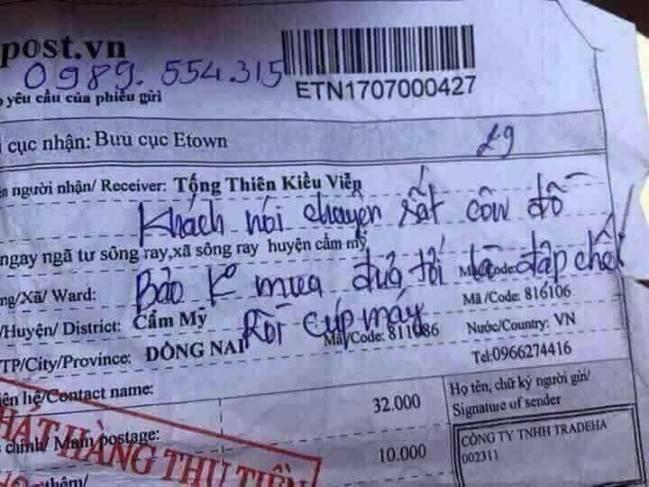 post.vn
0989.554.315
ETN1707000427
yêu cầu của phiếu gửi
cục nhận: Bưu cục Etown
29
người nhận/ Receiver: Tống Thiên Kiều Viễn
Khách nói chuyện rất côn đồ
ngay ngã tư sông ray,xã sông ray huyện cẩm mỹ
Bảo k mua đưa tới là đập chết
ng/Xã/ Ward:
Mã/Code: 816106
Rồi cúp máy
/Huyện/ District: Cẩm Mỹ
Mã/Code: 811086
Nước/Country: VN
TP/City/Province: ĐỒNG NAI
Tel:0966274416
iên hệ/Contact name:
32.000
Họ tên, chữ ký người gửi/
Signature of sender
chính/ Main postage:
10.000
CÔNG TY TNHH TRADEHA
002311
HÁT HÀNG THU TIỀN
thêm/